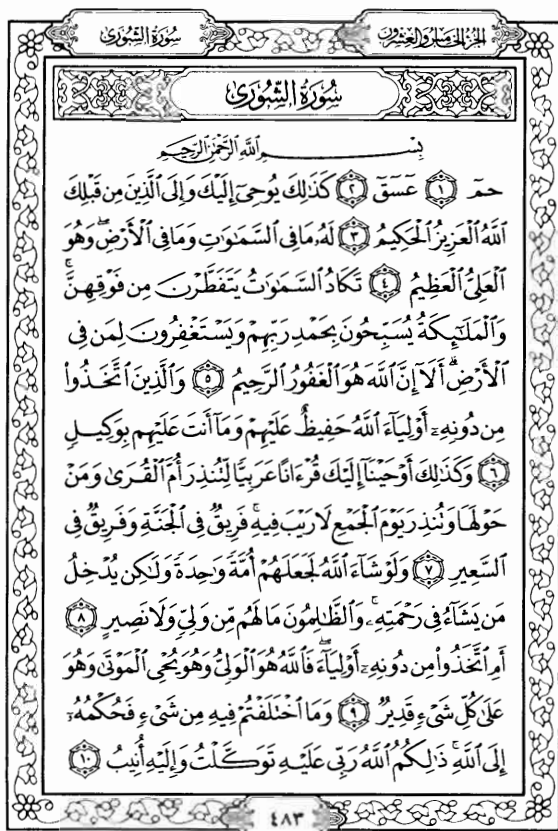 الجزء الخامس والعشرون
سورة الشورى
سُورَةُ الشُّورَىٰ
بِسْمِ اللَّهِ الرَّحْمَٰنِ الرَّحِيمِ
حمٓ ١ عٓسٓقٓ ٢ كَذَٰلِكَ يُوحِىٓ إِلَيْكَ وَإِلَى ٱلَّذِينَ مِن قَبْلِكَ
ٱللَّهُ ٱلْعَزِيزُ ٱلْحَكِيمُ ٣ لَهُۥ مَا فِى ٱلسَّمَٰوَٰتِ وَمَا فِى ٱلْأَرْضِۖ وَهُوَ
ٱلْعَلِىُّ ٱلْعَظِيمُ ٤ تَكَادُ ٱلسَّمَٰوَٰتُ يَتَفَطَّرْنَ مِن فَوْقِهِنَّۚ
وَٱلْمَلَٰٓئِكَةُ يُسَبِّحُونَ بِحَمْدِ رَبِّهِمْ وَيَسْتَغْفِرُونَ لِمَن فِى
ٱلْأَرْضِۗ أَلَآ إِنَّ ٱللَّهَ هُوَ ٱلْغَفُورُ ٱلرَّحِيمُ ٥ وَٱلَّذِينَ ٱتَّخَذُوا۟
مِن دُونِهِۦٓ أَوْلِيَآءَ ٱللَّهُ حَفِيظٌ عَلَيْهِمْ وَمَآ أَنتَ عَلَيْهِم بِوَكِيلٍ
٦ وَكَذَٰلِكَ أَوْحَيْنَآ إِلَيْكَ قُرْءَانًا عَرَبِيًّا لِّتُنذِرَ أُمَّ ٱلْقُرَىٰ وَمَنْ
حَوْلَهَا وَتُنذِرَ يَوْمَ ٱلْجَمْعِ لَا رَيْبَ فِيهِۚ فَرِيقٌ فِى ٱلْجَنَّةِ وَفَرِيقٌ فِى
ٱلسَّعِيرِ ٧ وَلَوْ شَآءَ ٱللَّهُ لَجَعَلَهُمْ أُمَّةً وَٰحِدَةً وَلَٰكِن يُدْخِلُ
مَن يَشَآءُ فِى رَحْمَتِهِۦۚ وَٱلظَّٰلِمُونَ مَا لَهُم مِّن وَلِىٍّ وَلَا نَصِيرٍ ٨
أَمِ ٱتَّخَذُوا۟ مِن دُونِهِۦٓ أَوْلِيَآءَۖ فَٱللَّهُ هُوَ ٱلْوَلِىُّ وَهُوَ يُحْىِ ٱلْمَوْتَىٰ وَهُوَ
عَلَىٰ كُلِّ شَىْءٍ قَدِيرٌ ٩ وَمَا ٱخْتَلَفْتُمْ فِيهِ مِن شَىْءٍ فَحُكْمُهُۥٓ
إِلَى ٱللَّهِۚ ذَٰلِكُمُ ٱللَّهُ رَبِّى عَلَيْهِ تَوَكَّلْتُ وَإِلَيْهِ أُنِيبُ ١٠
٤٨٣